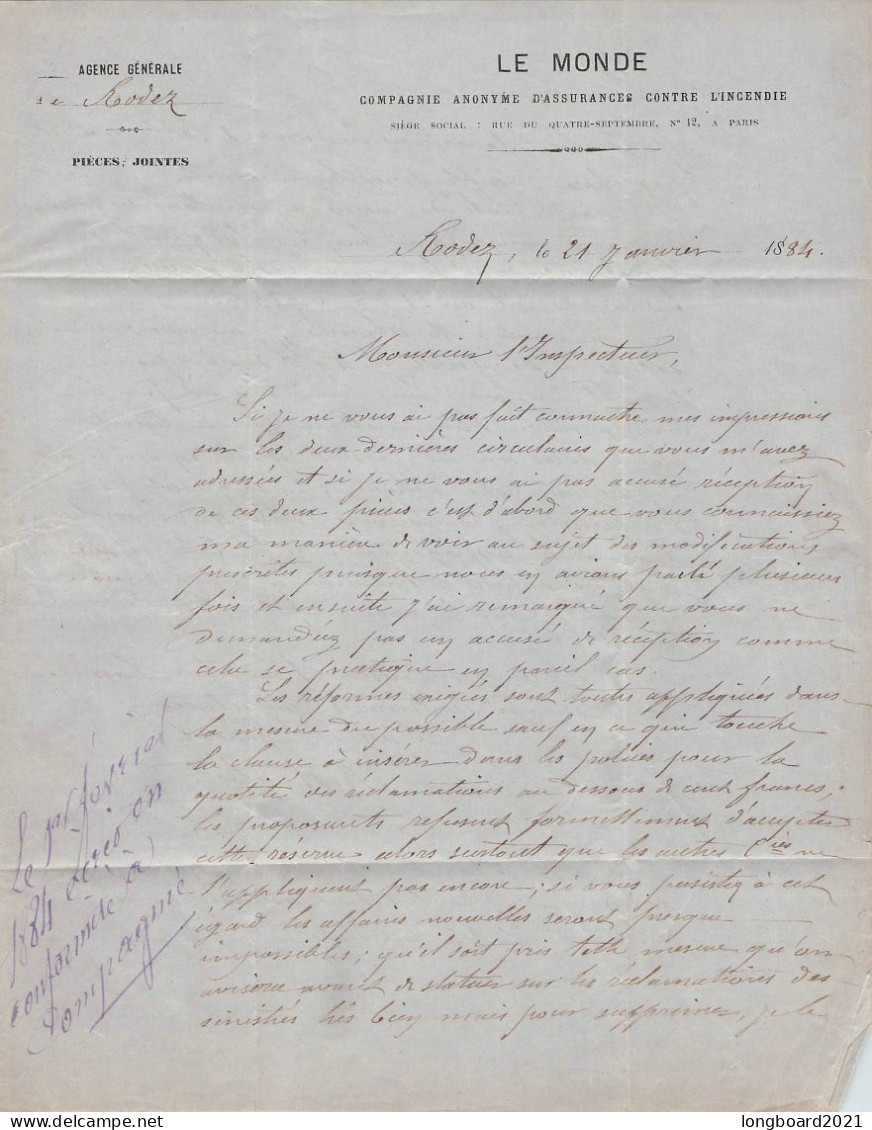 AGENCE GÉNÉRALE
de Rodez
PIÈCES JOINTES
LE MONDE
COMPAGNIE ANONYME D'ASSURANCES CONTRE L'INCENDIE
SIÈGE SOCIAL : RUE DU QUATRE-SEPTEMBRE, N° 12, A PARIS
Rodez, le 21 Janvier 1884.
Monsieur l'Inspecteur,
Si je ne vous ai pas fait connaitre mes impressions
sur les deux dernières circulaires que vous m'avez
adressées et si je ne vous ai pas accusé réception
de ces deux pièces c'est d'abord que vous connaissiez
ma manière de voir au sujet des modifications
prescrites puisque nous en avions parlé plusieurs
fois et ensuite j'ai remarqué que vous ne
demandiez pas un accusé de réception comme
cela se pratique en pareil cas.
Les réformes exigées sont toutes appliquées dans
la mesure du possible sauf en ce qui touche
la clause à insérer dans les polices pour la
quotité des réclamations au dessous de cent francs;
les proposants refusent formellement d'accepter
cette réserve alors surtout que les autres Cies ne
l'appliquent pas encore; si vous persistez à cet
égard les affaires nouvelles seront presque
impossibles; qu'il soit pris telle mesure qu'on
avisera avant de statuer sur les réclamations des
sinistrés très bien mais pour supprimer, je le
Le 1er février
1884 écris en
conformité à
Compagnie
longboard2021